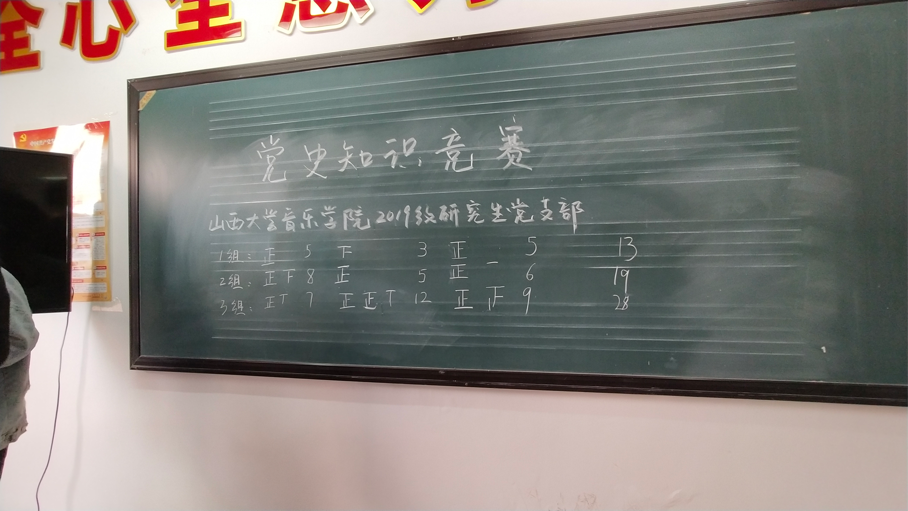 全心全意为
党史知识竞赛
山西大学音乐学院2019级研究生党支部
1组：正 5 下 3 正 5 13
2组：正下 8 正 5 正一 6 19
3组：正丅 7 正正丅 12 正正 9 28